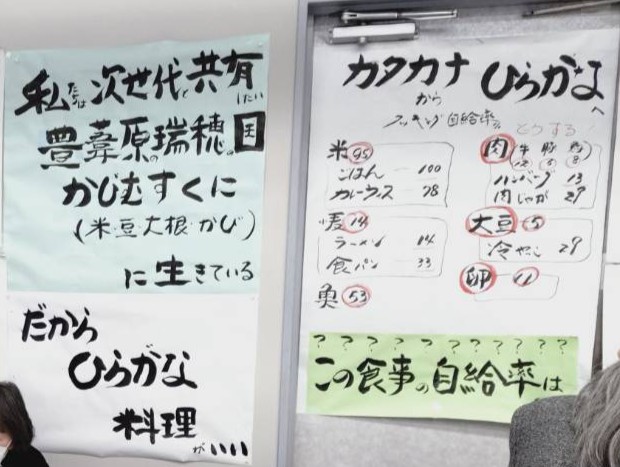 私たちは次世代と共有したい
豊葦原の瑞穂の国
かびむすくに
(米・豆・大根・かび)
に生きている
だから
ひらがな
料理がいい
カタカナ
から
ひらがなへ
クッキング自給率%
どうする?
米 95
ごはん — 100
カレーライス — 78
麦 14
ラーメン — 14
食パン — 33
魚 53
肉 (牛 豚 鳥)
ハンバーグ 13
肉じゃが 29
大豆 5
冷やっこ 29
卵 11
? ? ? ? ? ? ? ? ? ? ?
この食事の自給率は